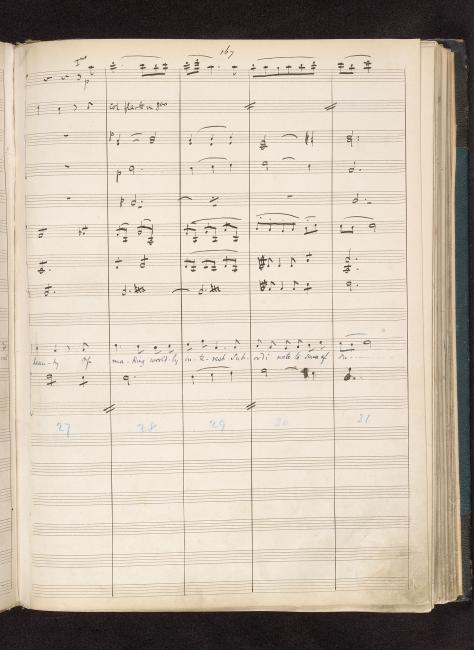 167
1mo
p
col flauto in 8va
p
p
p
beau-ty of ma-king world-ly in-te-rest sub-ordi nate to sense of du-
27 28 29 30 31